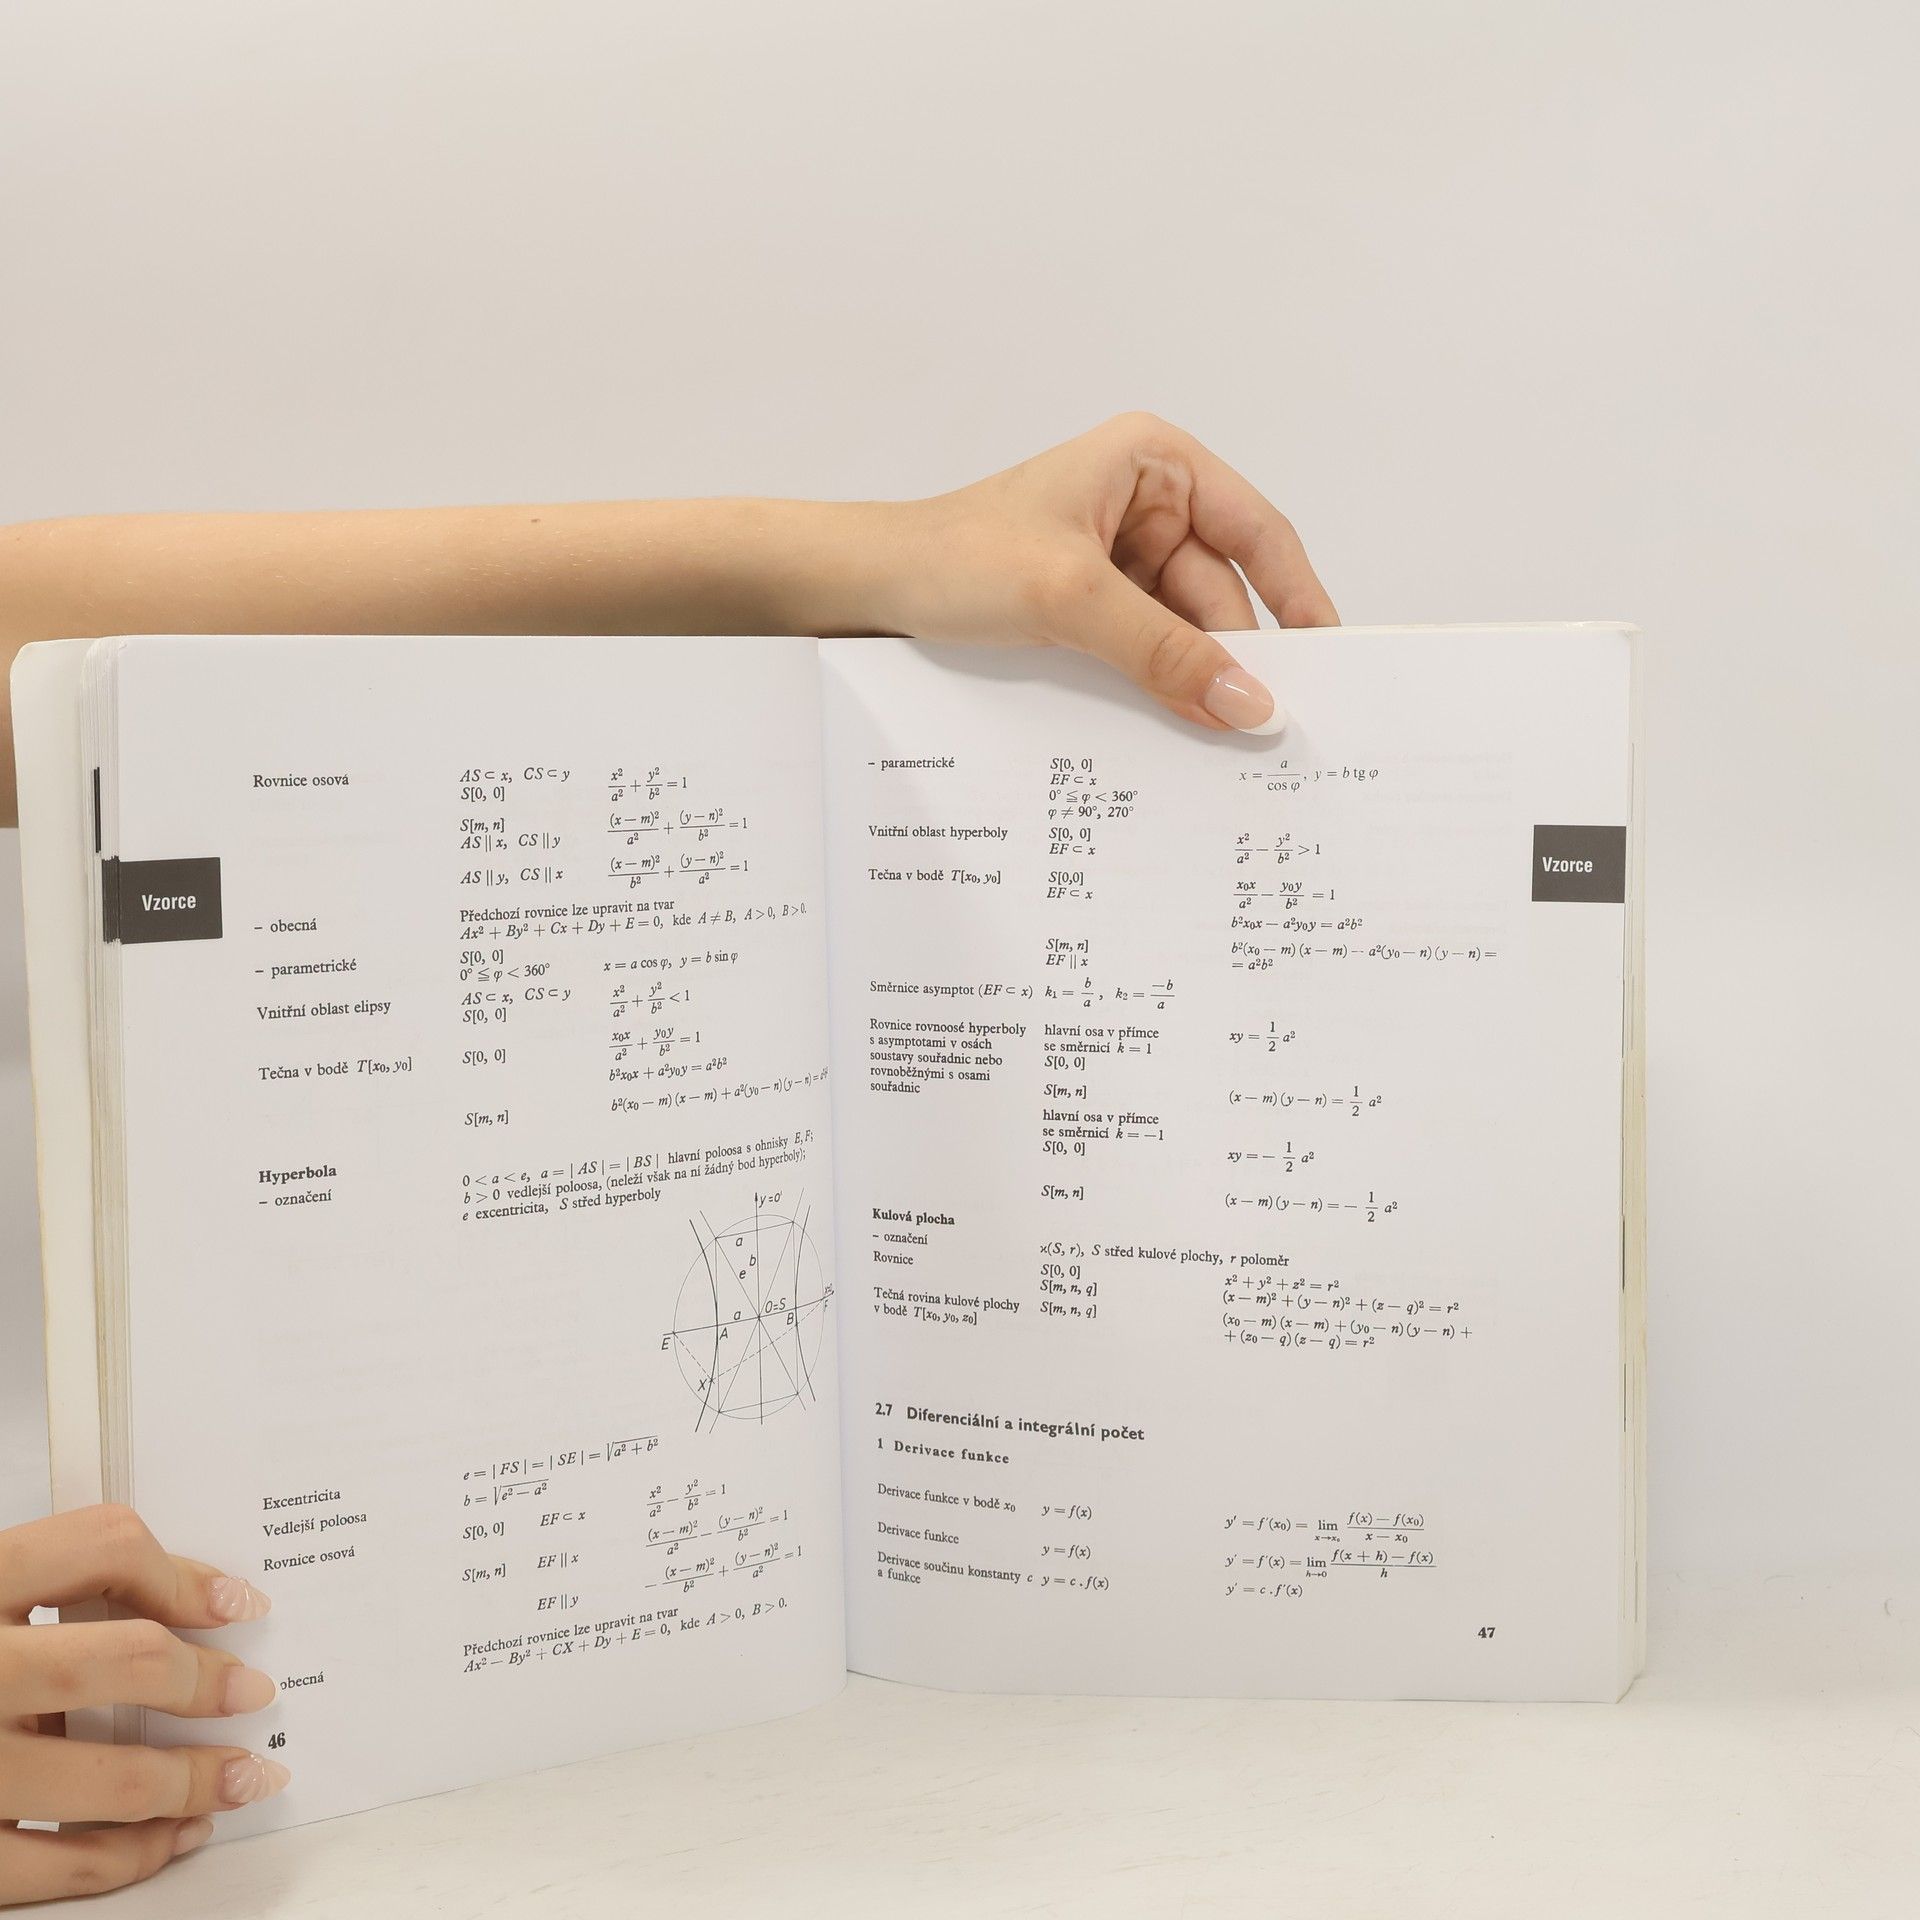 Vzorce
Rovnice osová AS ⊂ x, CS ⊂ y x²/a² + y²/b² = 1
S[0, 0]
S[m, n] (x − m)²/a² + (y − n)²/b² = 1
AS || x, CS || y
AS || y, CS || x (x − m)²/b² + (y − n)²/a² = 1
Předchozí rovnice lze upravit na tvar
– obecná Ax² + By² + Cx + Dy + E = 0, kde A ≠ B, A > 0, B > 0.
S[0, 0]
– parametrické 0° ≦ φ < 360° x = a cos φ, y = b sin φ
Vnitřní oblast elipsy AS ⊂ x, CS ⊂ y x²/a² + y²/b² < 1
S[0, 0]
Tečna v bodě T[x₀, y₀] S[0, 0] x₀x/a² + y₀y/b² = 1
b²x₀x + a²y₀y = a²b²
S[m, n] b²(x₀ − m) (x − m) + a²(y₀ − n) (y − n) = a²b²
Hyperbola 0 < a < e, a = | AS | = | BS | hlavní poloosa s ohnisky E, F;
– označení b > 0 vedlejší poloosa, (neleží však na ní žádný bod hyperboly);
e excentricita, S střed hyperboly
y=o'
a
b
e
a O=S
E A B F
X
Excentricita e = | FS | = | SE | = √(a² + b²)
Vedlejší poloosa b = √(e² − a²)
Rovnice osová S[0, 0] EF ⊂ x x²/a² − y²/b² = 1
S[m, n] EF || x (x − m)²/a² − (y − n)²/b² = 1
EF || y − (x − m)²/b² + (y − n)²/a² = 1
Předchozí rovnice lze upravit na tvar
obecná Ax² − By² + CX + Dy + E = 0, kde A > 0, B > 0.
46
– parametrické S[0, 0] x = a/cos φ, y = b tg φ
EF ⊂ x
0° ≦ φ < 360°
φ ≠ 90°, 270°
Vnitřní oblast hyperboly S[0, 0] x²/a² − y²/b² > 1
EF ⊂ x
Tečna v bodě T[x₀, y₀] S[0,0] x₀x/a² − y₀y/b² = 1
EF ⊂ x
b²x₀x − a²y₀y = a²b²
S[m, n] b²(x₀ − m) (x − m) − a²(y₀ − n) (y − n) =
EF || x = a²b²
Směrnice asymptot (EF ⊂ x) k₁ = b/a, k₂ = −b/a
Rovnice rovnoosé hyperboly hlavní osa v přímce xy = 1/2 a²
s asymptotami v osách se směrnicí k = 1
soustavy souřadnic nebo S[0, 0]
rovnoběžnými s osami
souřadnic S[m, n] (x − m) (y − n) = 1/2 a²
hlavní osa v přímce
se směrnicí k = −1
S[0, 0] xy = − 1/2 a²
S[m, n] (x − m) (y − n) = − 1/2 a²
Kulová plocha
– označení ϰ(S, r), S střed kulové plochy, r poloměr
Rovnice S[0, 0] x² + y² + z² = r²
S[m, n, q] (x − m)² + (y − n)² + (z − q)² = r²
Tečná rovina kulové plochy S[m, n, q] (x₀ − m) (x − m) + (y₀ − n) (y − n) +
v bodě T[x₀, y₀, z₀] + (z₀ − q) (z − q) = r²
2.7 Diferenciální a integrální počet
1 Derivace funkce
Derivace funkce v bodě x₀ y = f(x) y' = f'(x₀) = lim x→x₀ f(x) − f(x₀)/x − x₀
Derivace funkce y = f(x) y' = f'(x) = lim h→0 f(x + h) − f(x)/h
Derivace součinu konstanty c y = c . f(x) y' = c . f'(x)
a funkce
47
Vzorce